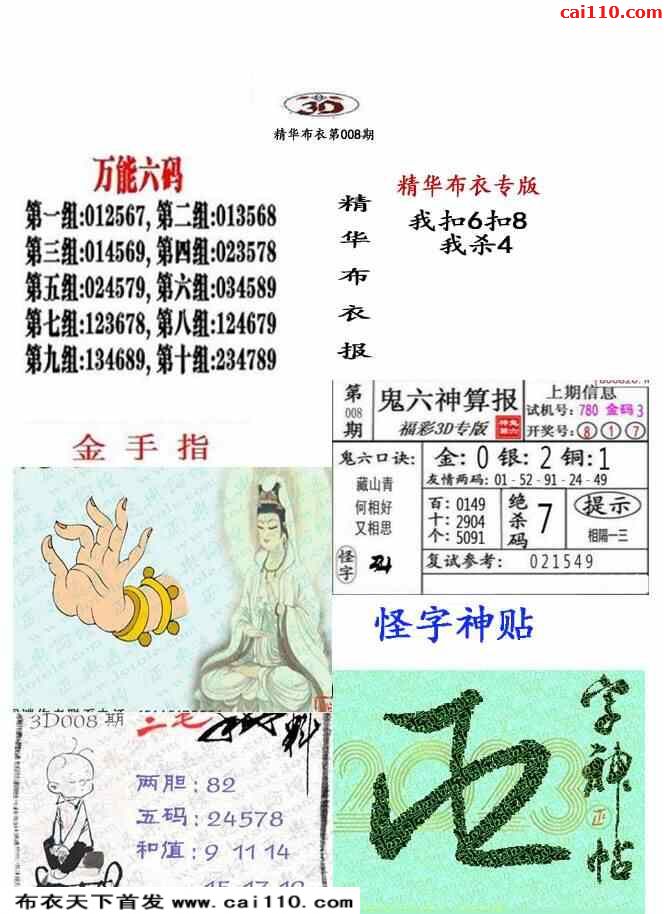 cai110.com
3D
精华布衣第008期
万能六码
第一组:012567,第二组:013568
第三组:014569,第四组:023578
第五组:024579,第六组:034589
第七组:123678,第八组:124679
第九组:134689,第十组:234789
精华布衣报
精华布衣专版
我扣6扣8
我杀4
金手指
第008期
鬼六神算报
福彩3D专版
上期信息
试机号:780 金码3
开奖号:8 1 7
鬼六口诀:
藏山青
何相好
又相思
怪字
金:0 银:2 铜:1
友情两码:01-52-91-24-49
百:0149
十:2904
个:5091
绝杀码
7
提示
相隔一三
复试参考:021549
怪字神贴
3D008期
二毛
料
两胆:82
五码:24578
和值:9 11 14
2023
字神帖
正
布衣天下首发 www.cai110.com